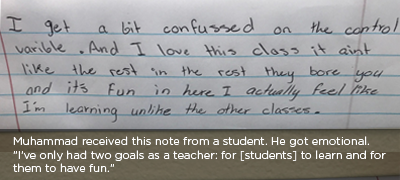 I get a bit confussed on the control
varible. And I love this class it aint
like the rest in the rest they bore you
and it's fun in here I actually feel like
I'm learning unlike the other classes.
Muhammad received this note from a student. He got emotional.
"I've only had two goals as a teacher: for [students] to learn and for
them to have fun."